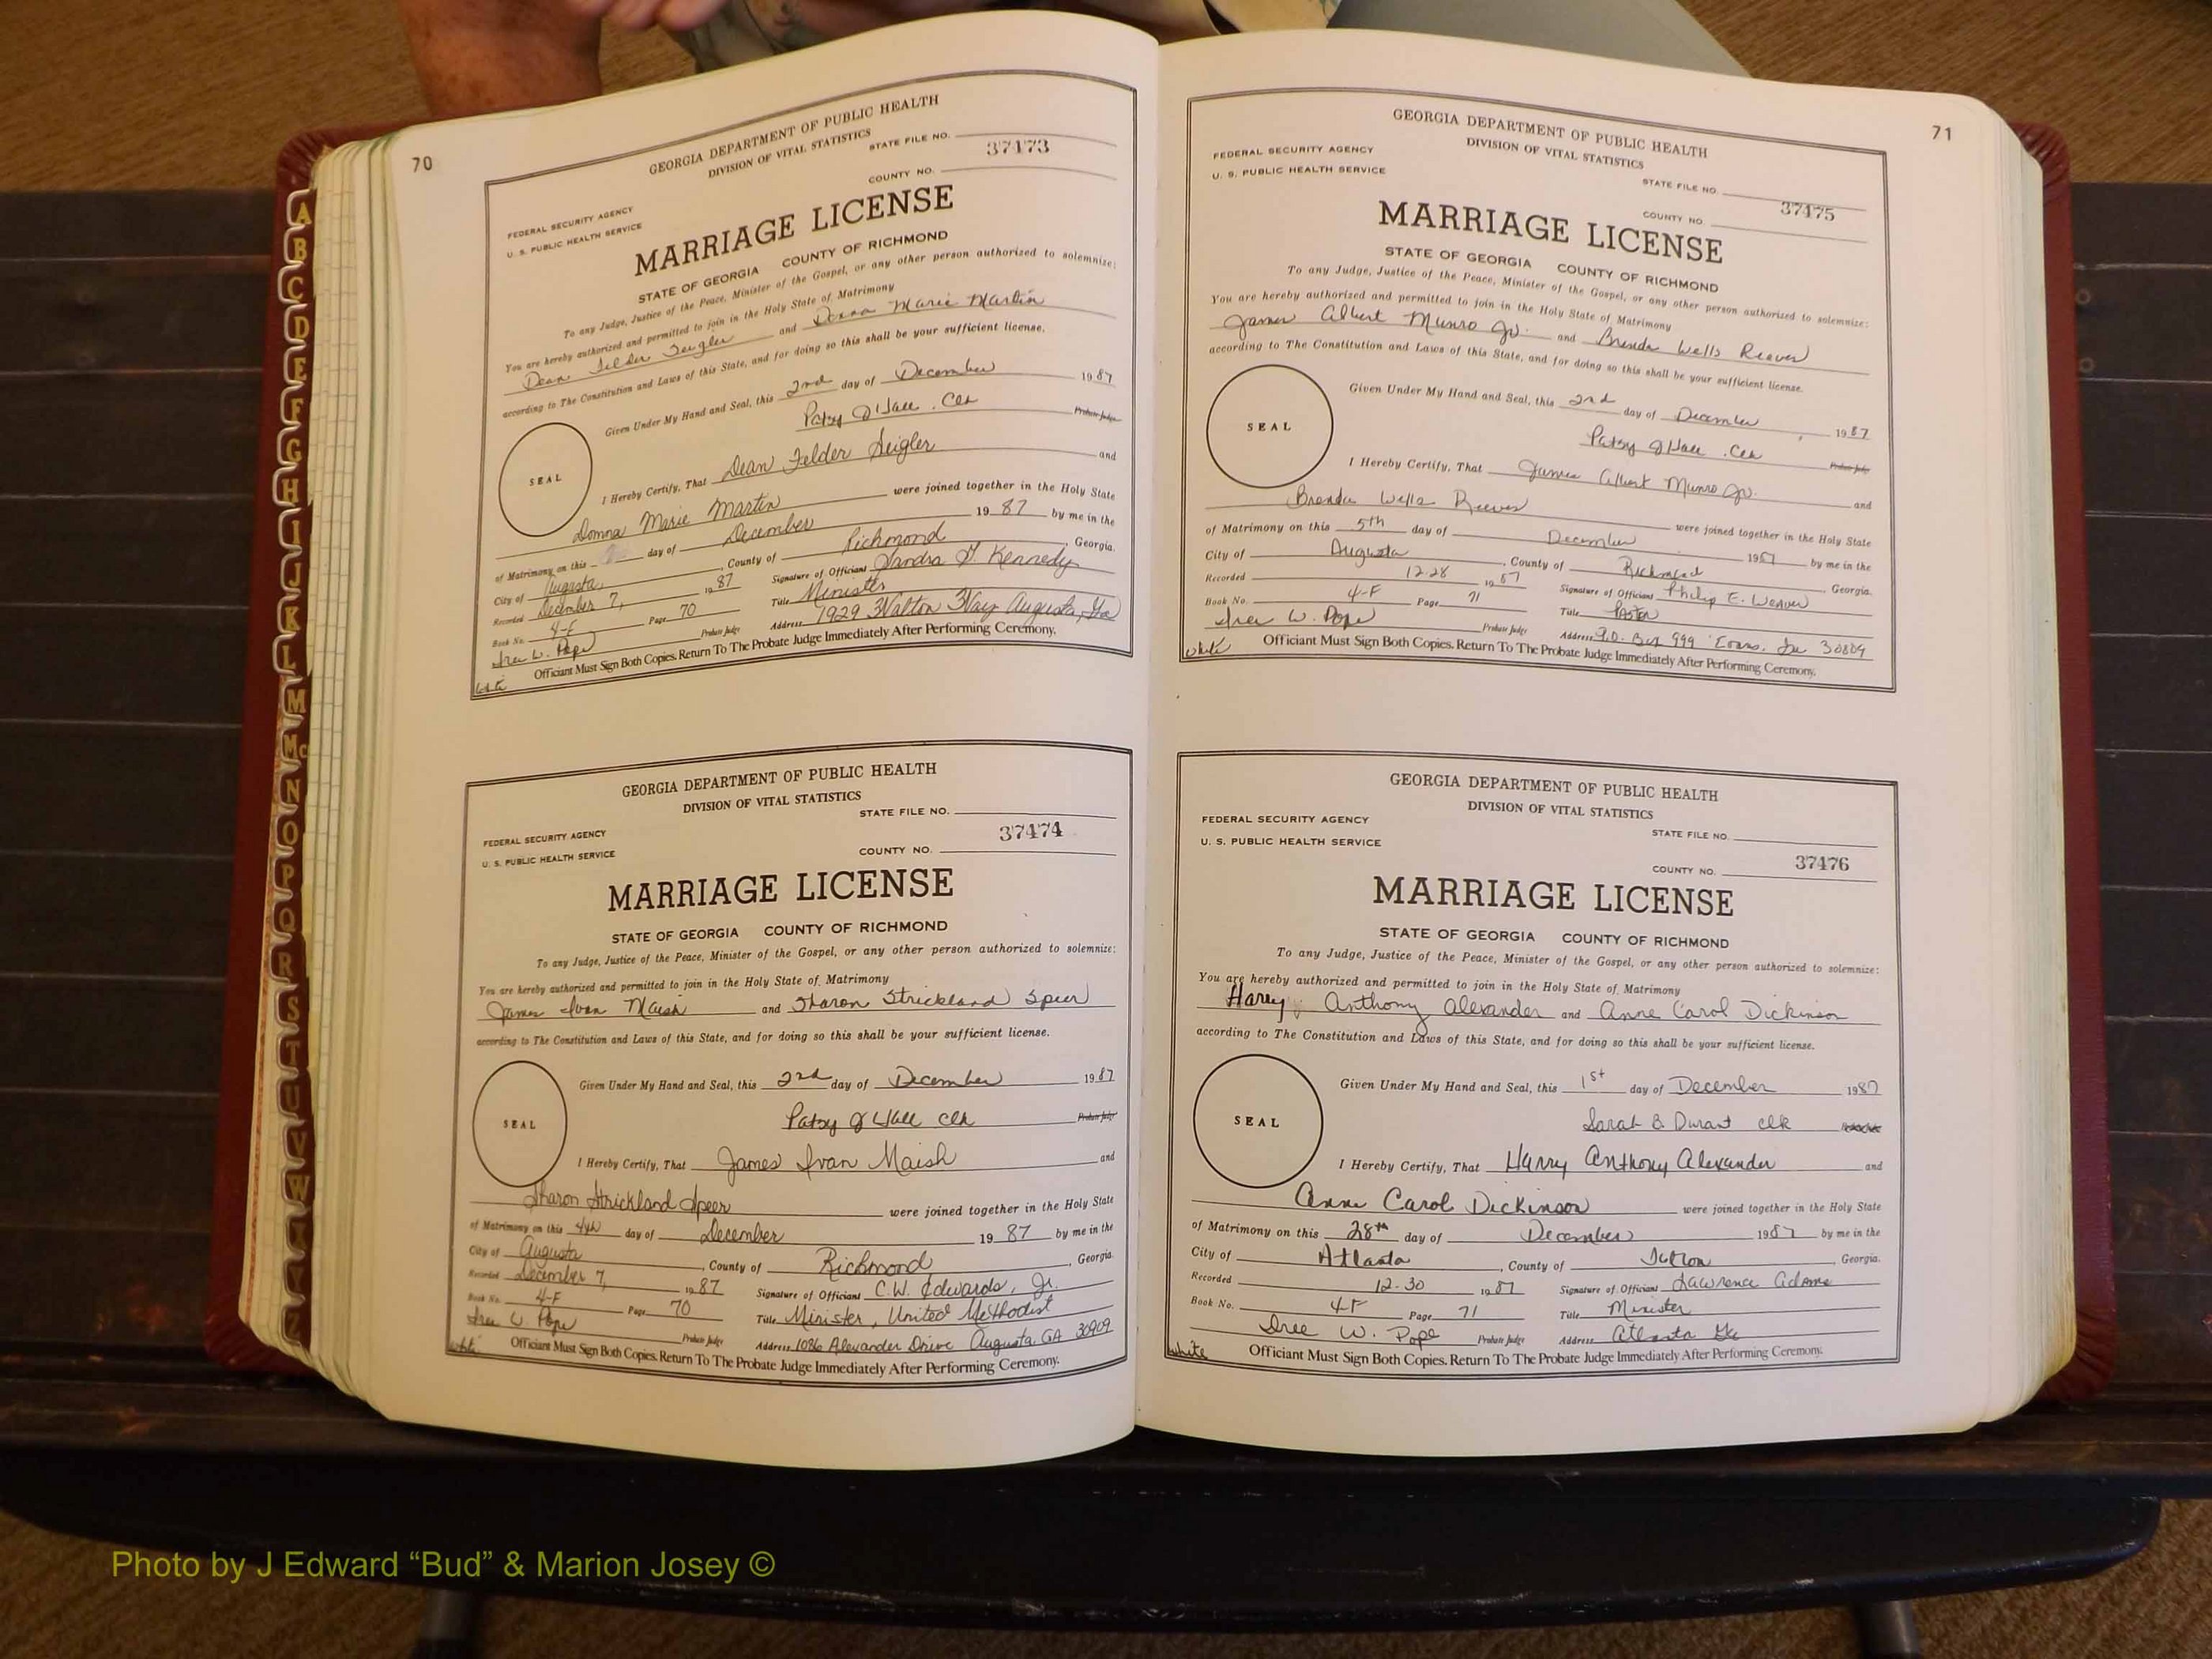 70
GEORGIA DEPARTMENT OF PUBLIC HEALTH
DIVISION OF VITAL STATISTICS
STATE FILE NO.
37473
FEDERAL SECURITY AGENCY
U. S. PUBLIC HEALTH SERVICE
COUNTY NO.
MARRIAGE LICENSE
STATE OF GEORGIA COUNTY OF RICHMOND
To any Judge, Justice of the Peace, Minister of the Gospel, or any other person authorized to solemnize:
You are hereby authorized and permitted to join in the Holy State of Matrimony
Dean Felder Seigler and Donna Marie Martin
according to The Constitution and Laws of this State, and for doing so this shall be your sufficient license.
Given Under My Hand and Seal, this 2nd day of December 1987
Patsy J Hall . Clk Probate Judge
SEAL
I Hereby Certify, That Dean Felder Seigler and
Donna Marie Martin were joined together in the Holy State
of Matrimony on this day of December 19 87 by me in the
City of Augusta, County of Richmond, Georgia.
Recorded December 7, 1987 Signature of Officiant Sandra G. Kennedy
Book No. 4-F Page 70 Title Minister
Probate Judge Address 1929 Walton Way Augusta, Ga
Iree W. Pope
white Officiant Must Sign Both Copies. Return To The Probate Judge Immediately After Performing Ceremony.
GEORGIA DEPARTMENT OF PUBLIC HEALTH
DIVISION OF VITAL STATISTICS
STATE FILE NO.
37474
FEDERAL SECURITY AGENCY
U. S. PUBLIC HEALTH SERVICE
COUNTY NO.
MARRIAGE LICENSE
STATE OF GEORGIA COUNTY OF RICHMOND
To any Judge, Justice of the Peace, Minister of the Gospel, or any other person authorized to solemnize:
You are hereby authorized and permitted to join in the Holy State of Matrimony
James Ivan Maish and Sharon Strickland Speer
according to The Constitution and Laws of this State, and for doing so this shall be your sufficient license.
Given Under My Hand and Seal, this 2nd day of December 1987
Patsy J Hall Clk Probate Judge
SEAL
I Hereby Certify, That James Ivan Maish and
Sharon Strickland Speer were joined together in the Holy State
of Matrimony on this 4th day of December 19 87 by me in the
City of Augusta, County of Richmond, Georgia.
Recorded December 7, 1987 Signature of Officiant C.W. Edwards, Jr.
Book No. 4-F Page 70 Title Minister, United Methodist
Iree W. Pope Probate Judge Address 1086 Alexander Drive Augusta, GA 30909
white Officiant Must Sign Both Copies. Return To The Probate Judge Immediately After Performing Ceremony.
71
GEORGIA DEPARTMENT OF PUBLIC HEALTH
DIVISION OF VITAL STATISTICS
FEDERAL SECURITY AGENCY
U. S. PUBLIC HEALTH SERVICE
STATE FILE NO.
37475
COUNTY NO.
MARRIAGE LICENSE
STATE OF GEORGIA COUNTY OF RICHMOND
To any Judge, Justice of the Peace, Minister of the Gospel, or any other person authorized to solemnize:
You are hereby authorized and permitted to join in the Holy State of Matrimony
James Albert Munro Jr. and Brenda Wells Reeves
according to The Constitution and Laws of this State, and for doing so this shall be your sufficient license.
Given Under My Hand and Seal, this 2nd day of December 1987
Patsy J Hall . Clk Probate Judge
SEAL
I Hereby Certify, That James Albert Munro Jr. and
Brenda Wells Reeves were joined together in the Holy State
of Matrimony on this 5th day of December 1987 by me in the
City of Augusta, County of Richmond Georgia.
Recorded 12-28 1987 Signature of Officiant Philip E. Weaver
Book No. 4-F Page 71 Title Pastor
Iree W. Pope Probate Judge Address P.O. Box 999 Evans, Ga 30809
white Officiant Must Sign Both Copies. Return To The Probate Judge Immediately After Performing Ceremony.
GEORGIA DEPARTMENT OF PUBLIC HEALTH
DIVISION OF VITAL STATISTICS
FEDERAL SECURITY AGENCY
U. S. PUBLIC HEALTH SERVICE
STATE FILE NO.
37476
COUNTY NO.
MARRIAGE LICENSE
STATE OF GEORGIA COUNTY OF RICHMOND
To any Judge, Justice of the Peace, Minister of the Gospel, or any other person authorized to solemnize:
You are hereby authorized and permitted to join in the Holy State of Matrimony
Harry Anthony Alexander and Anne Carol Dickinson
according to The Constitution and Laws of this State, and for doing so this shall be your sufficient license.
Given Under My Hand and Seal, this 1st day of December 1987
Sarah B. Durant clk
SEAL
I Hereby Certify, That Harry Anthony Alexander and
Anne Carol Dickinson were joined together in the Holy State
of Matrimony on this 28th day of December 1987 by me in the
City of Atlanta, County of Fulton, Georgia.
Recorded 12-30 1987 Signature of Officiant Lawrence Adams
Book No. 4-F Page 71 Title Minister
Iree W. Pope Probate Judge Address Atlanta Ga
white Officiant Must Sign Both Copies. Return To The Probate Judge Immediately After Performing Ceremony.
A
B
C
D
E
F
G
H
I
J
K
L
M
Mc
N
O
P
Q
R
S
T
U
V
W
X
Y
Z
Photo by J Edward “Bud” & Marion Josey ©